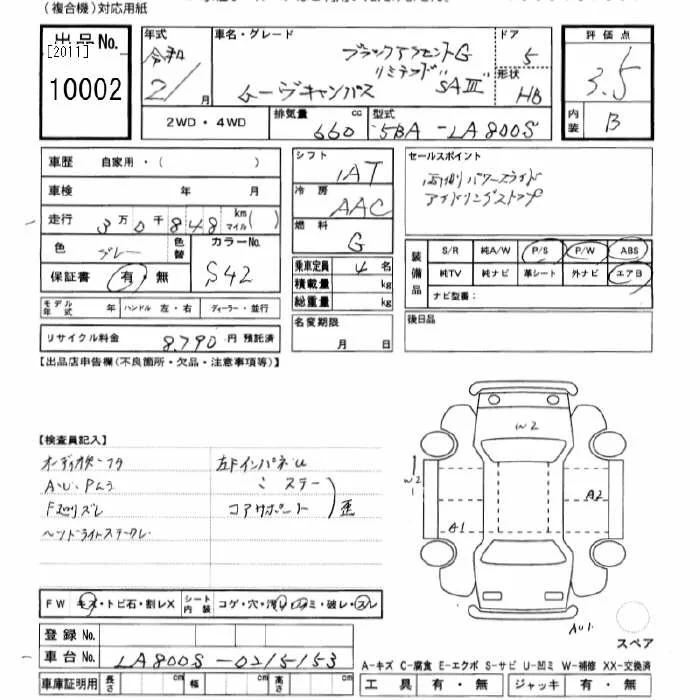 (複合機)対応用紙
出品No. [2011] 10002
年式 令和 2 / 月
車名・グレード ブラックアクセントG
リミテッド SAⅢ
ムーヴキャンバス
ドア 5
形状 HB
評価点 3.5
内装 B
2WD・4WD
排気量 660 cc
型式 5BA-LA800S
車歴 自家用・( )
車検 年 月
走行 3万0千848 km マイル( )
色 グレー 色替
カラーNo. S42
保証書 有・無
モデル年式 年 ハンドル 左・右 ディーラー・並行
リサイクル料金 8,790 円 預託済
シフト IAT
冷房 AAC
燃料 G
乗車定員 4 名
積載量 kg
総重量 kg
名変期限
月 日
セールスポイント
両側パワースライド
アイドリングストップ
装備品 S/R 純A/W P/S P/W ABS
純TV 純ナビ 革シート 外ナビ エアB
ナビ型番:
後日品
【出品店申告欄(不良箇所・欠品・注意事項等)】
【検査員記入】
A・U・Pムラ
コアサポート 歪
W2
W2
A2
A1
AU1
スペア
FW キズ・トビ石・割レX シート内装 コゲ・穴・汚レ・シミ・破レ・スレ
登録No.
車台No. LA800S-0215153
車庫証明用 長さ cm 幅 cm 高さ cm
A-キズ C-腐食 E-エクボ S-サビ U-凹ミ W-補修 XX-交換済
工具 有・無 ジャッキ 有・無